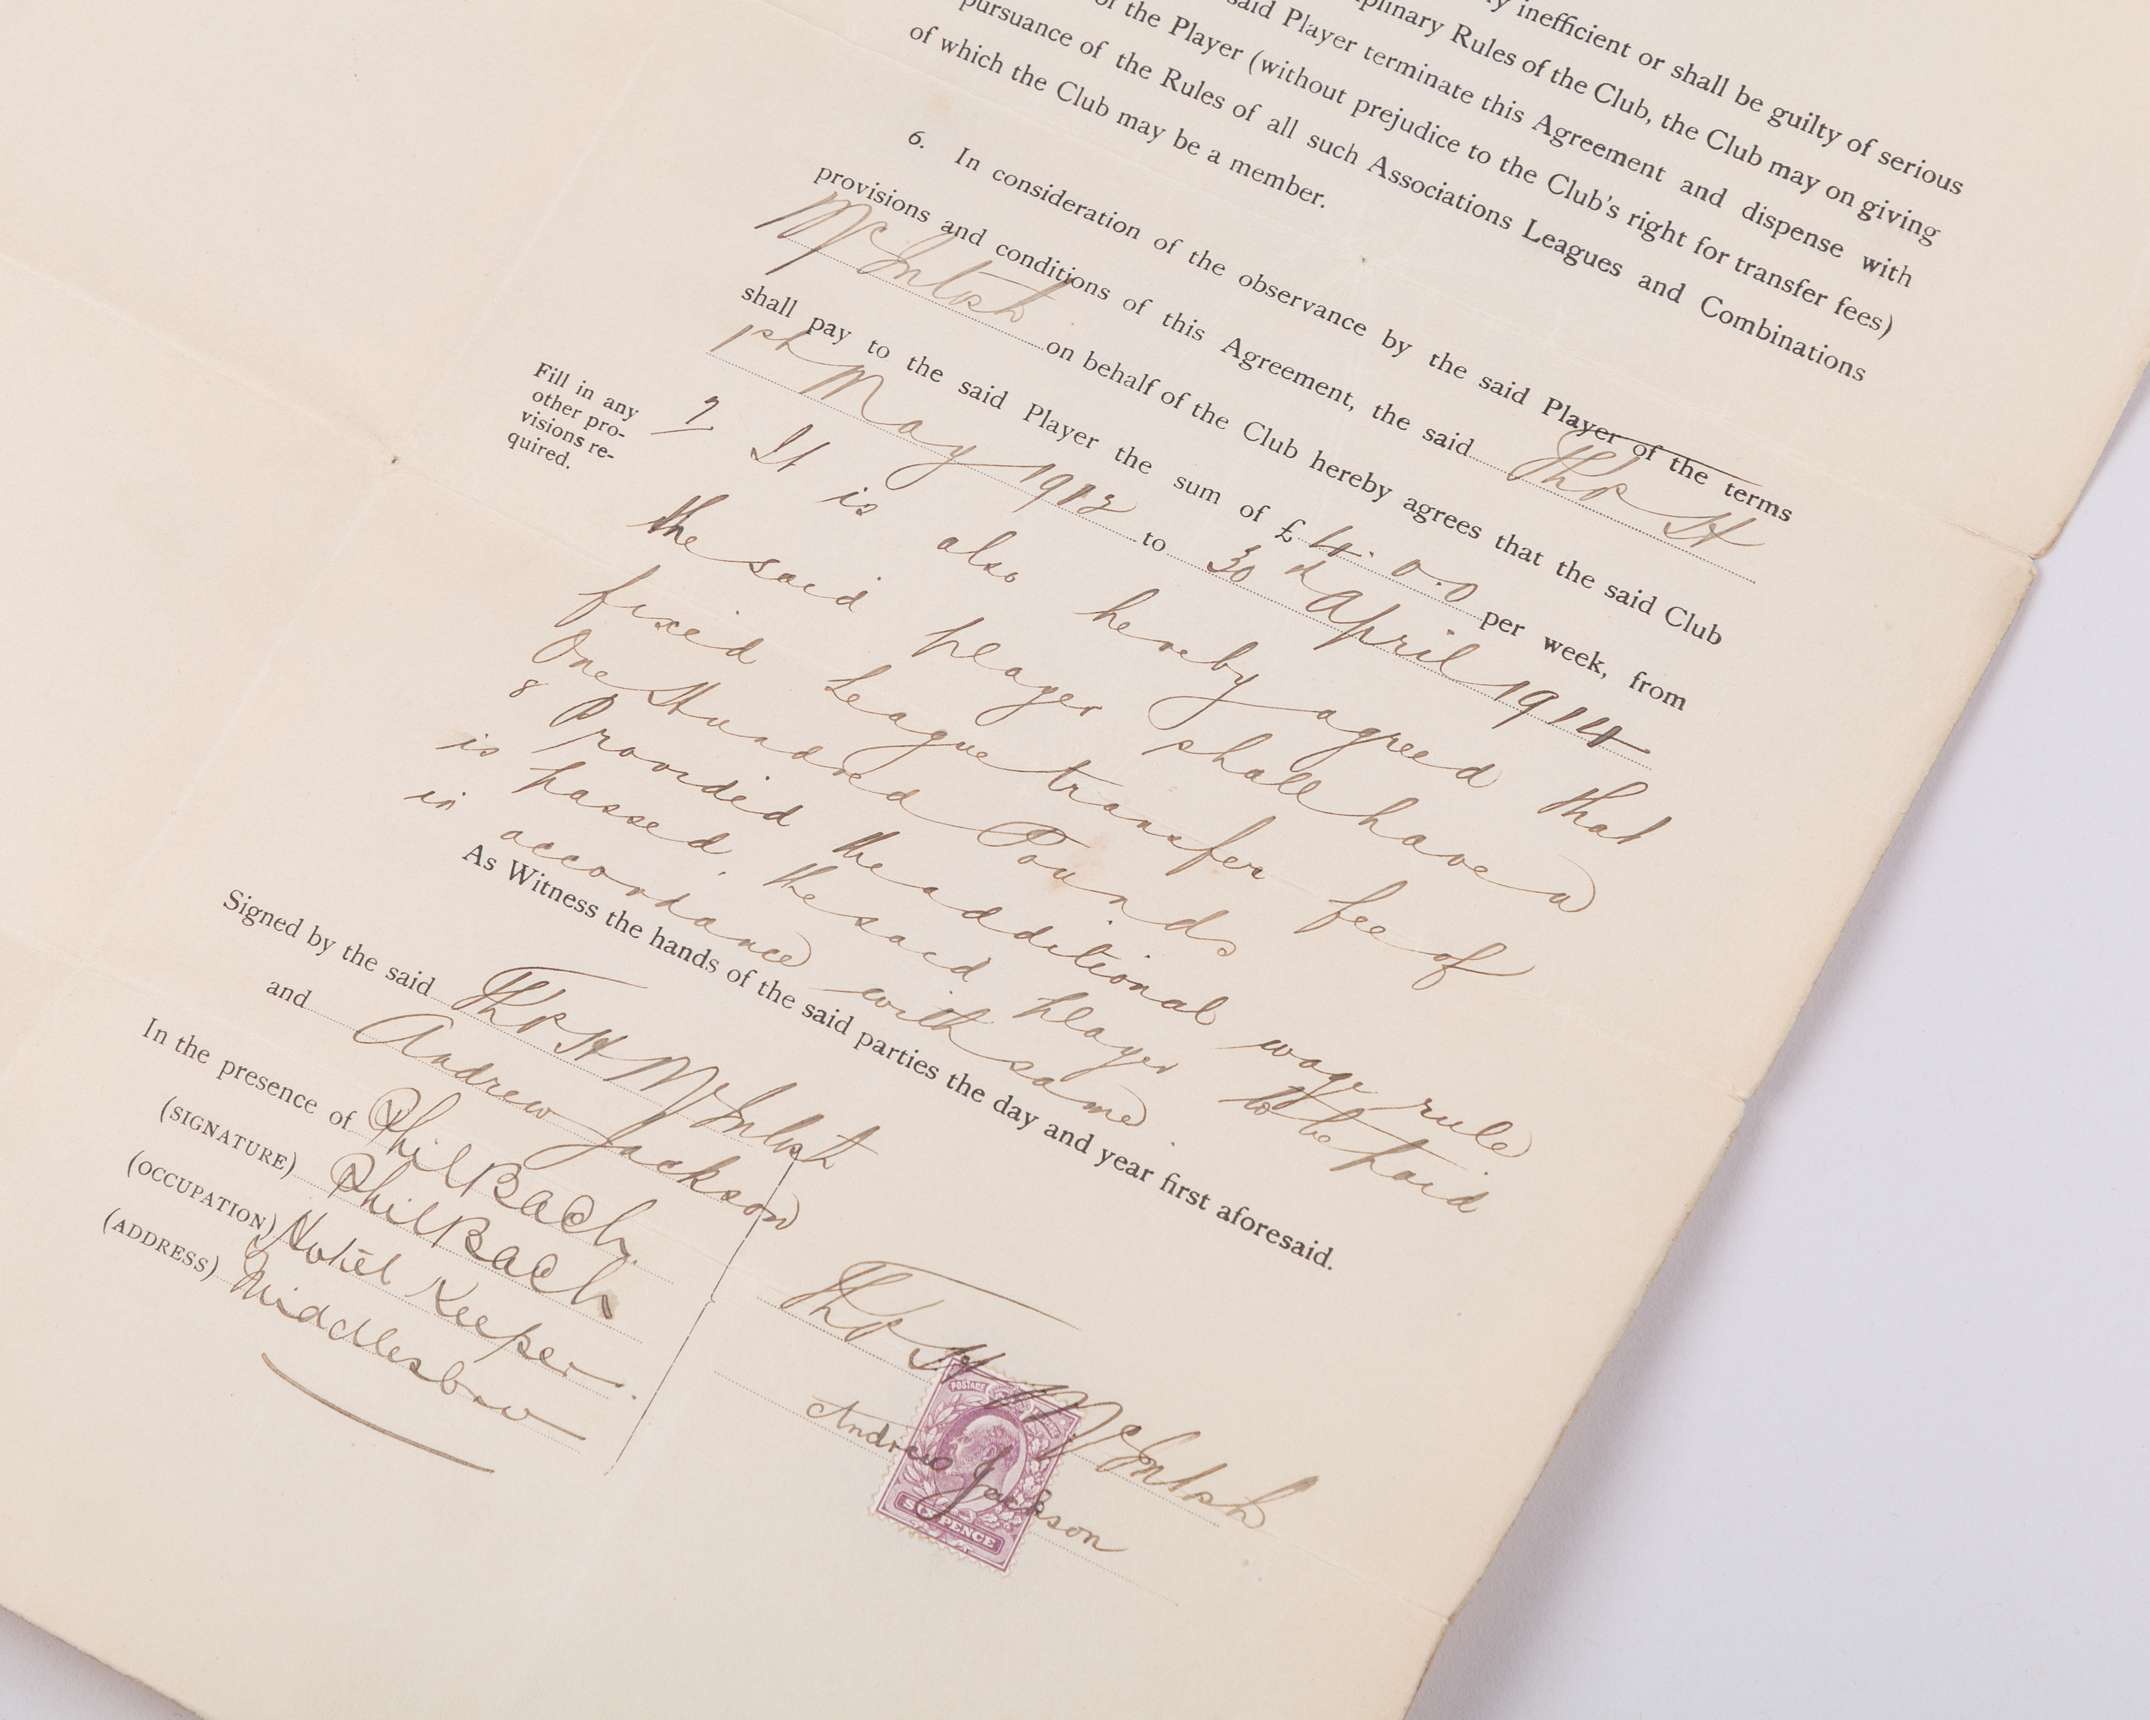 y inefficient or shall be guilty of serious
plinary Rules of the Club, the Club may on giving
said Player terminate this Agreement and dispense with
of the Player (without prejudice to the Club's right for transfer fees)
pursuance of the Rules of all such Associations Leagues and Combinations
of which the Club may be a member.
6. In consideration of the observance by the said Player of the terms
provisions and conditions of this Agreement, the said Thos H
McIntosh on behalf of the Club hereby agrees that the said Club
shall pay to the said Player the sum of £ 4.0.0 per week, from
1st May 1913 to 30 April 1914
Fill in any
other pro-
visions re-
quired.
7 It is also hereby agreed that
the said player shall have a
fixed League transfer fee of
One Hundred Pounds
8 Provided the additional wage rule
is passed, the said player to be paid
in accordance with same.
As Witness the hands of the said parties the day and year first aforesaid.
Signed by the said Thos H McIntosh
and Andrew Jackson
In the presence of Phil Bach
(SIGNATURE) Phil Bach
(OCCUPATION) Hotel Keeper.
(ADDRESS) Middlesbro
Thos H McIntosh
Andrew Jackson
POSTAGE
SIXPENCE